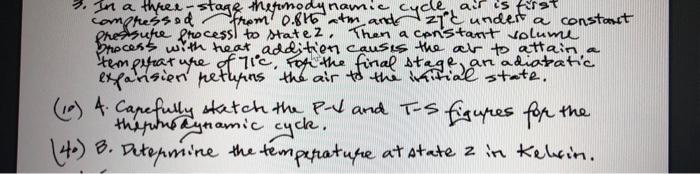 3. In a three-stage thermodynamic cycle air is first
compressed from 0.816 atm and 27°C under a constant
pressure process to state 2. Then a constant volume
process with heat addition causes the air to attain a
temperature of 71°C. For the final stage, an adiabatic
expansion returns the air to the initial state.
(10) A. Carefully sketch the P-V and T-S figures for the
thermodynamic cycle.
(40) B. Determine the temperature at state 2 in Kelvin.